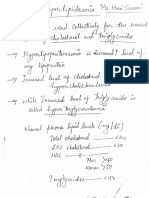 Hyperlipidemia
used Collectively for the
cholesterol and Triglycerides
→ Hyperlipoproteinemia is increased level of
any lipoprotein
→ Increased level of Cholesterol
hypercholesterolemia
→ while Increased level of Triglycerides is
called hypertriglyceridemia
Normal plasma lipid levels (mg/dl)
Total cholesterol
LDL cholesterol
HDL
Men >40
Women >50
Triglycerides